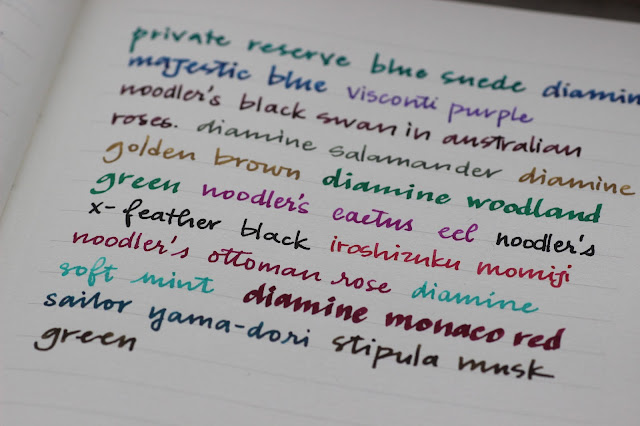 private reserve blue suede diamin
majestic blue visconti purple
noodler's black swan in australian
roses. diamine salamander diamine
golden brown diamine woodland
green noodler's cactus eel noodler's
x-feather black iroshizuku momiji
noodler's ottoman rose diamine
soft mint diamine monaco red
sailor yama-dori stipula musk
green